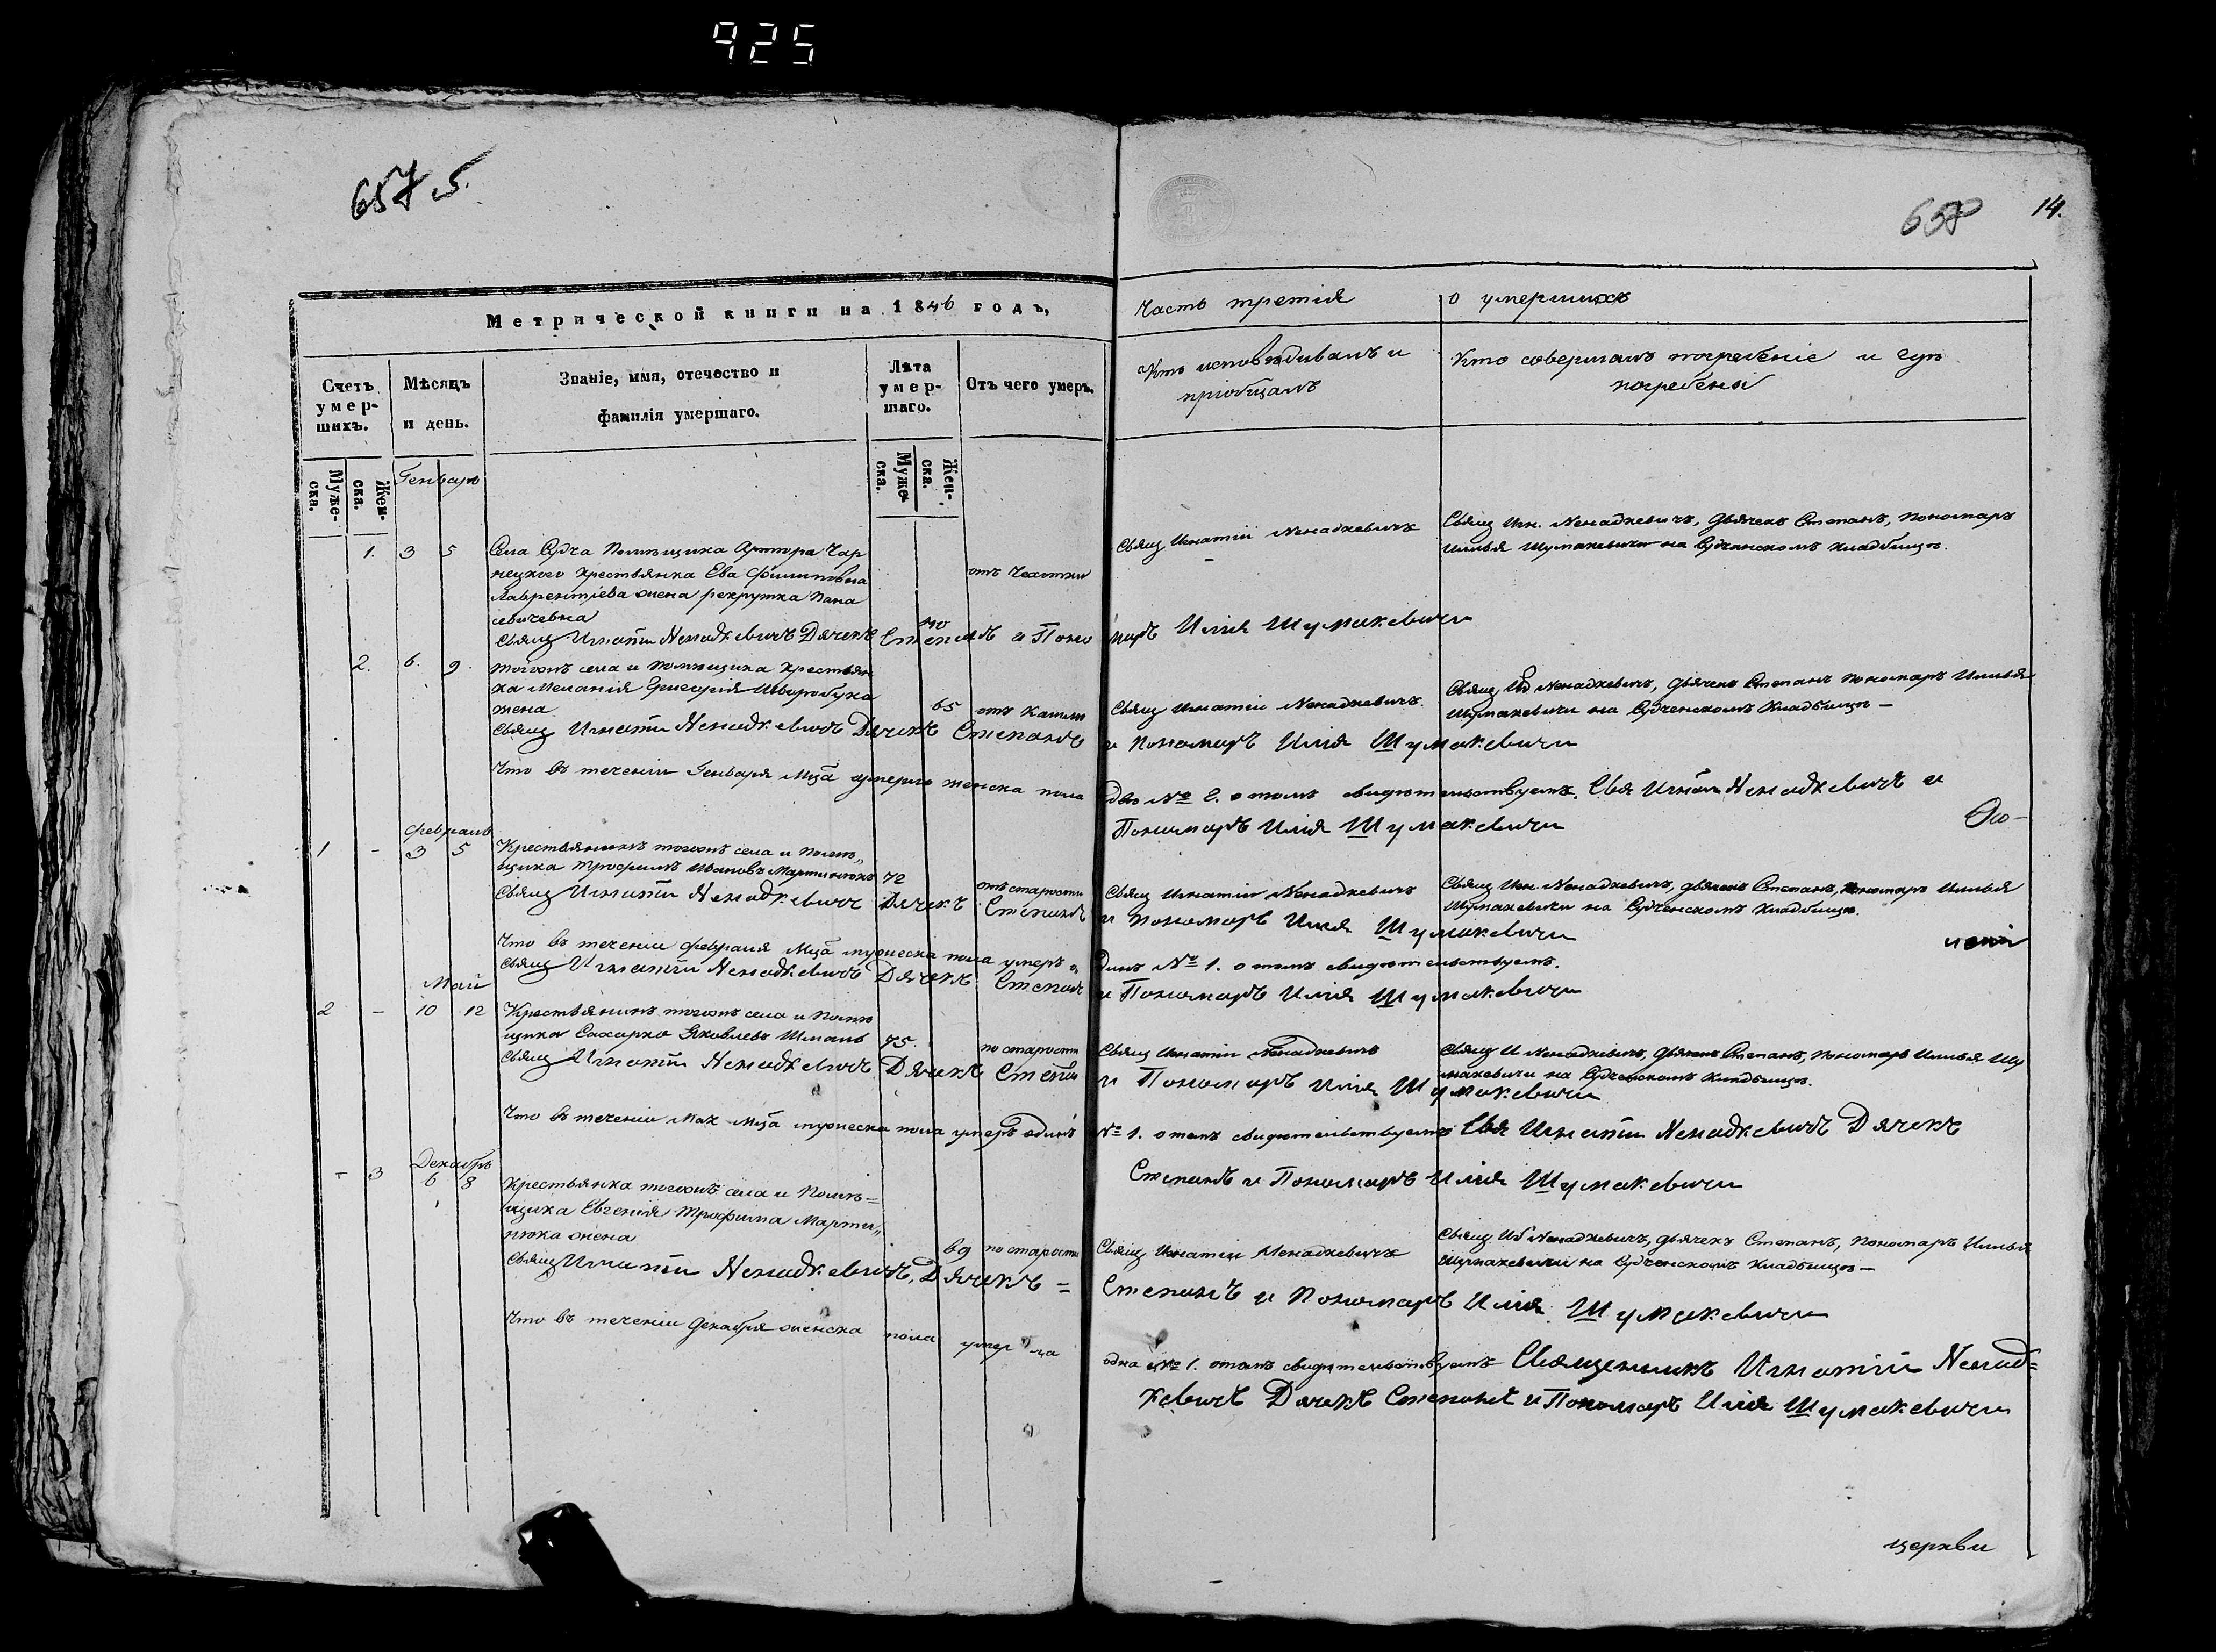 925
657 об.
658
14.
Метрической книги на 1846 годъ,
Часть третія
о умершихъ
Счетъ умер-шихъ.
Мѣсяцъ и день.
Званіе, имя, отечество и фамилія умершаго.
Лѣта умер-шаго.
Отъ чего умеръ.
Кто исповѣдивалъ и пріобщалъ
Кто совершалъ погребеніе и гдѣ погребены
Муже-ска.
Жен-ска.
Муже-ска.
Жен-ска.
Генварь
1. 3 5 Села Судча Помѣщика Артура Чар
нецкого крестьянка Ева Филиповна
Лаврентіева жена рекрутка Пана
севичевна
40
отъ Чахотки
Свящ Игнатіи Ненадкевичъ
Свящ Игн. Ненадкевичъ, Дьячекъ Степанъ, Пономаръ
Илья Шумакевичи на Судчанскомъ кладбищѣ.
Свящ Игнатіи Ненадкевичъ Дячекъ Степанъ и Поно
маръ Илія Шумакевичи
2. 6. 9. тогожъ села и помѣщика Крестьян
ка Меланія Григорія
жена
65 отъ Кашли
Свящ Игнатіи Ненадкевичъ.
Свящ Иг Ненадкевичъ, дьячекъ Степанъ Пономаръ Илья
Шумакевичи на Судченскомъ Кладбищѣ —
Свящ Игнатіи Ненадкевичъ Дячекъ Степанъ
и Пономаръ Илія Шумакевичи
Что въ теченіи Генваря Мца умерло женска пола
двѣ № 2. о томъ свидѣтельствуемъ. Свя Игнатіи Ненадкевичъ и
Пономаръ Илія Шумакевичи
Февраль
1 - 3 5 Крестьянинъ тогожъ села и Помѣ„
щика Трофимъ Ивановъ Мартинюкъ 72
отъ старости
Свящ Игнатіи Ненадкевичъ
Свящ Игн. Ненадкевичъ, дьячекъ Степанъ, пономаръ Илья
Шумакевичи на Судченскомъ Кладбищѣ.
Свящ Игнатіи Ненадкевичъ Дячекъ Степанъ
и Пономаръ Илія Шумакевичи
Что въ теченіи Февраля Мца мужеска пола умеръ о
динъ № 1. о томъ свидѣтельствуемъ.
Свящ Игнатіи Ненадкевичъ Дячекъ Степанъ
и Пономаръ Илія Шумакевичи
Май
2 - 10 12 Крестьянинъ тогожъ села и Помѣ
щика Сахарко Яковлевъ Шмаль 75.
по старости
Свящ Игнатіи Ненадкевичъ
Свящ И Ненадкевичъ, Дьячекъ Степанъ, Пономаръ Илья Шу
макевичи на Судченскомъ Кладбищѣ.
Свящ Игнатіи Ненадкевичъ Дячекъ Степан
и Пономаръ Илія Шумакевичи
Что въ теченіи Мая Мца мужеска пола умеръ одинъ
№ 1. о томъ свидѣтельствуемъ Свя Игнатіи Ненадкевичъ Дячекъ
Степанъ и Пономаръ Илія Шумакевичи
Декабрь
- 3 6 8 Крестьянка тогожъ села и Помѣ=
щика Евгенія Трофима Марти„
нюка жена
69 по старости
Свящ Игнатіи Ненадкевичъ
Свящ Иг Ненадкевичъ, дьячекъ Степанъ, Пономаръ Илья
Шумакевичи на Судченскомъ Кладбищѣ —
Свящ Игнатіи Ненадкевичъ, Дячекъ =
Степанъ и Пономаръ Илія Шумакевичи
Что въ теченіи Декабря женска пола умерла
одна № 1. о томъ свидѣтельствуемъ Священникъ Игнатіи Ненад=
кевичъ Дячекъ Степанъ и Пономаръ Илія Шумакевичи
церкви